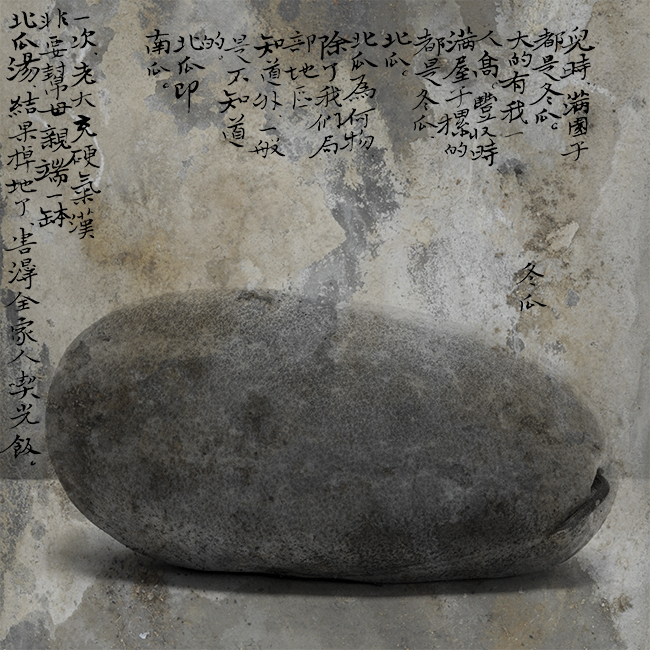 兒時、滿園子
都是冬瓜。
大的有我一
人高。豐收時
滿屋子摞的
都是冬瓜、
北瓜。
北瓜為何物
除了我們局
部地區
知道外、一般
是不知道
的。
北瓜即
南瓜。
一次、老大充硬氣漢
非要幫母親端一缽
北瓜湯、結果掉地了、害得全家人喫光飯。
冬瓜